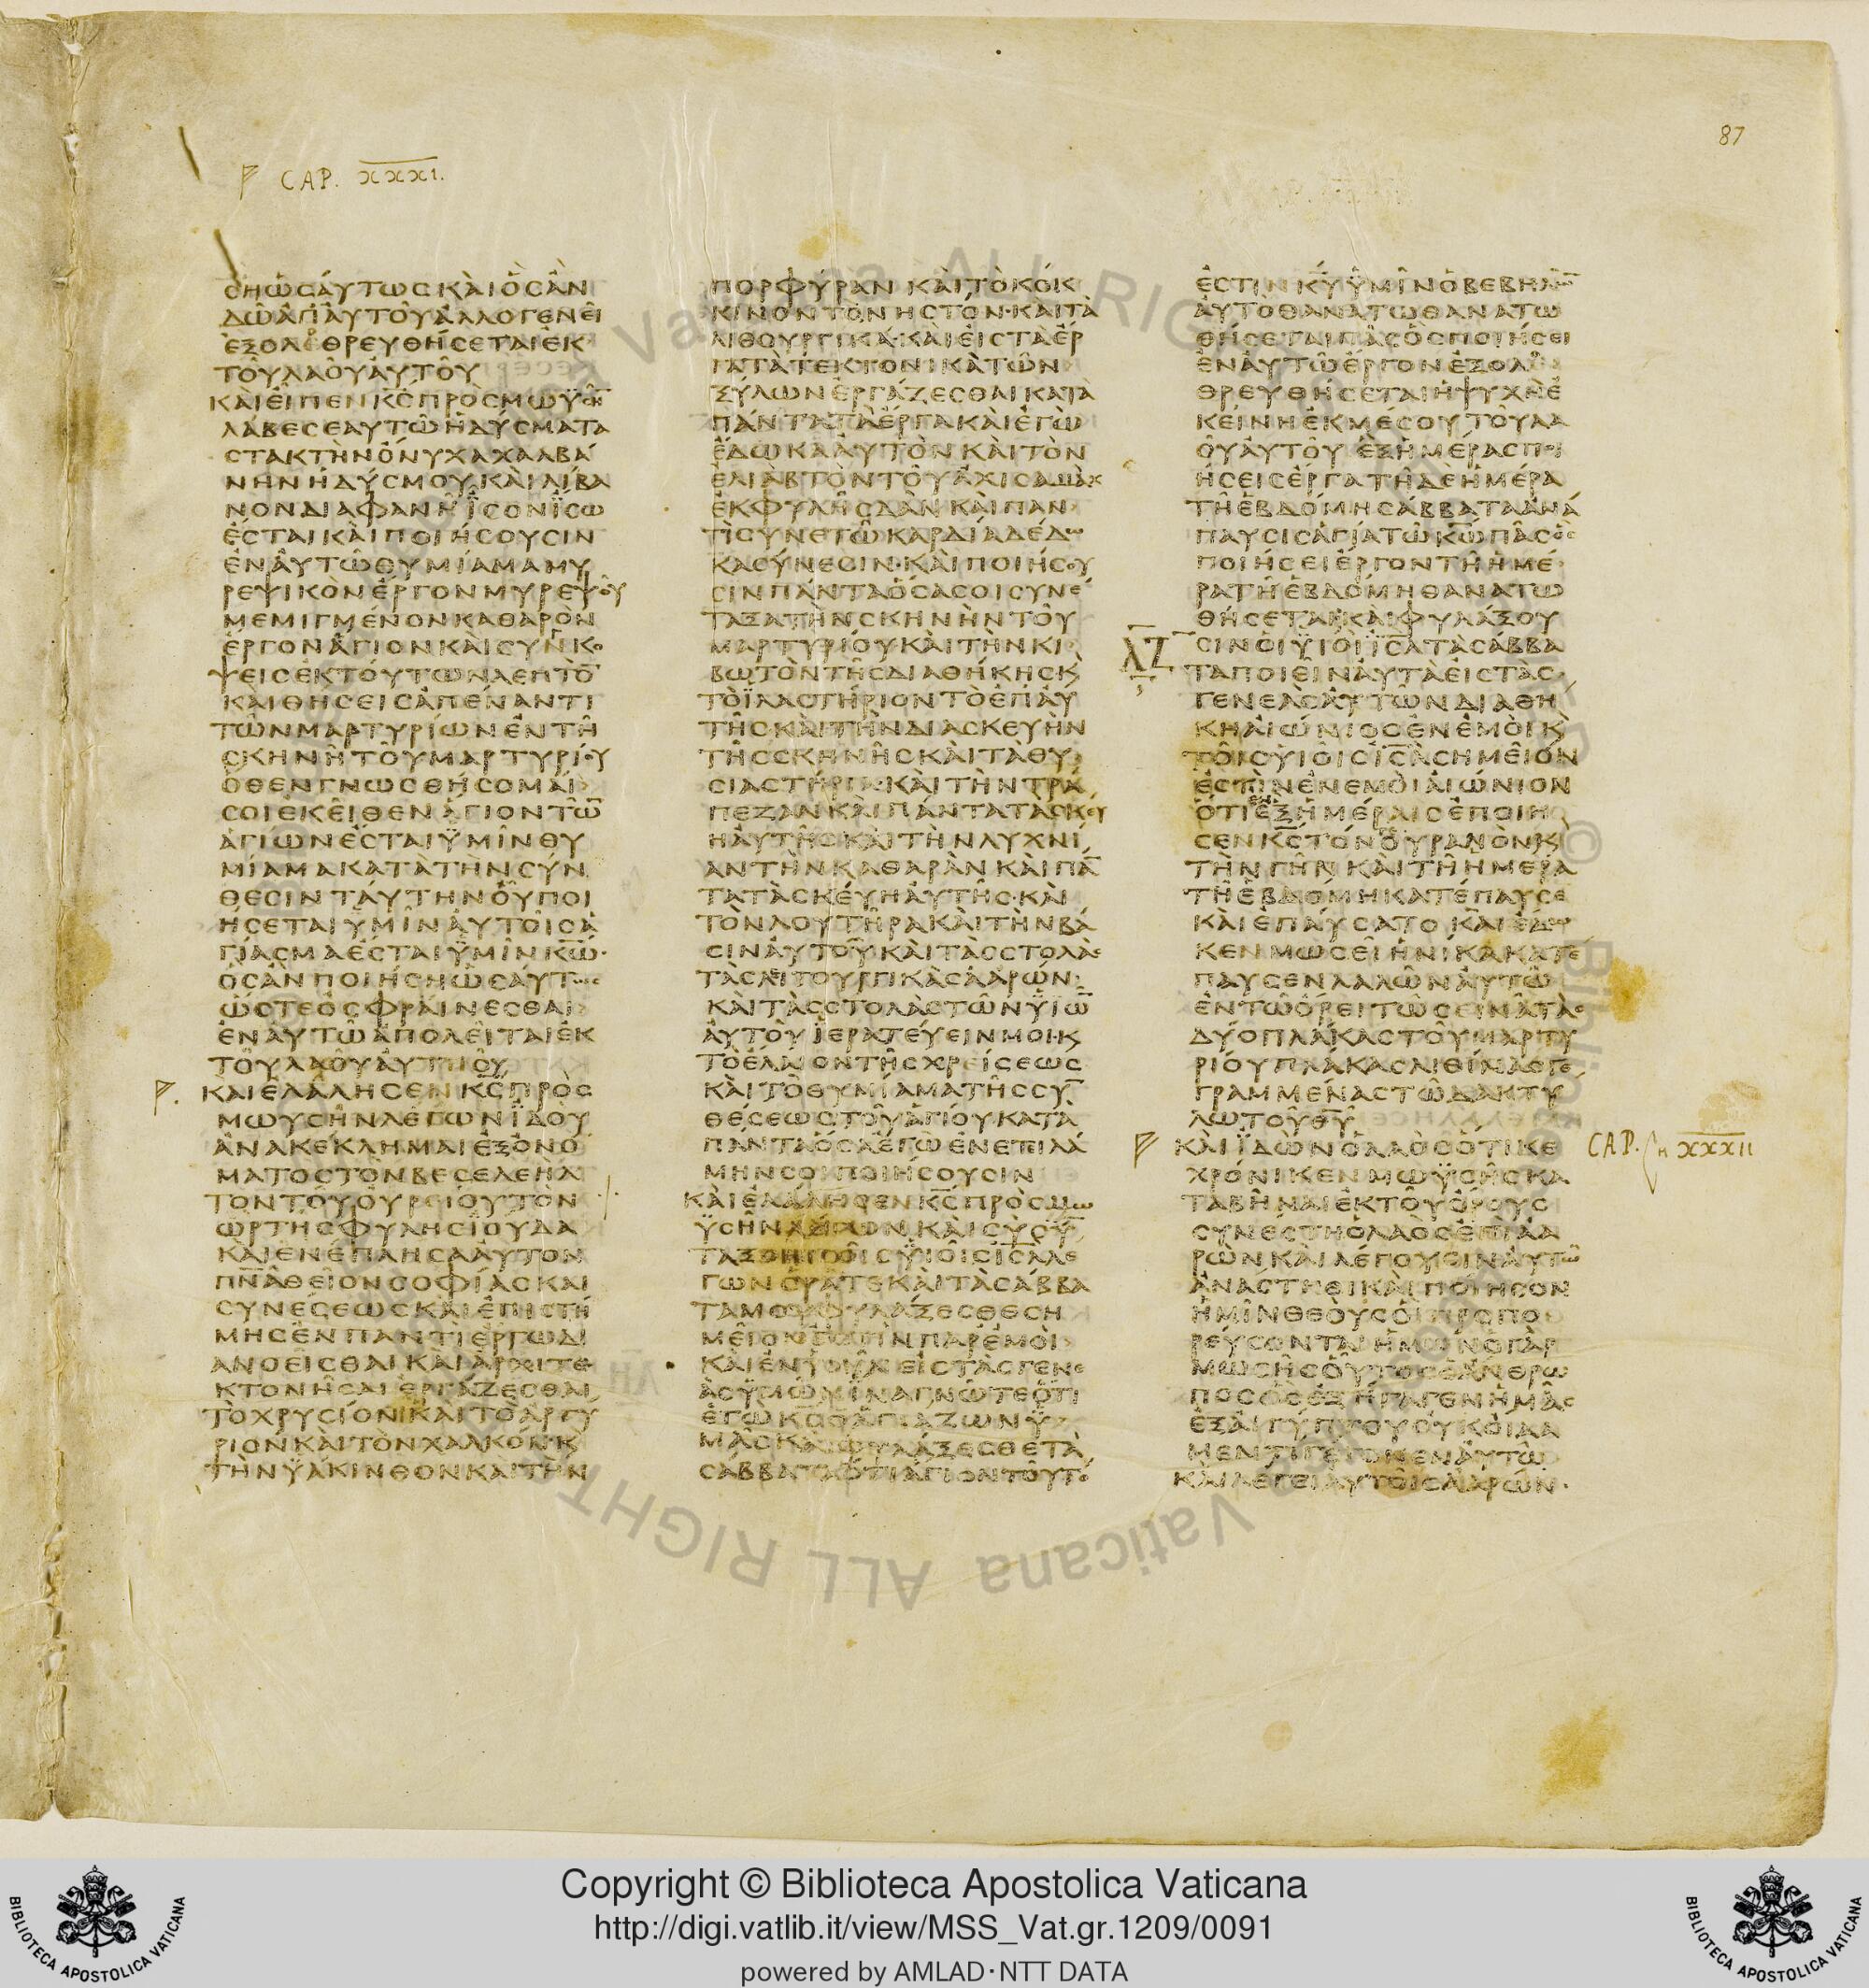 87
CAP. XXXI.
ϹΗὡϹΑΎΤΩϹΚΑῚὋϹἊΝ
ΔῶἈΠΑΥΤΟΥΑΛΛΟΓΕΝΕΙ
ἘΞΟΛΕΘΡΕΥΘΉϹΕΤΑΙἘΚ
ΤΟΥΛΑΟΥΑΥΤΟΥ
ΚΑΙΕΙΠΕΝΚ̅Ϲ̅ΠΡΟϹΜΩΥϹΗ̅
ΛΑΒΕϹΕΑΥΤΩΗΔΥϹΜΑΤΑ
ϹΤΑΚΤΗΝΟΝΥΧΑΧΑΛΒΑ
ΝΗΝΗΔΥϹΜΟΥΚΑΙΛΙΒΑ
ΝΟΝΔΙΑΦΑΝΗΪϹΟΝΪϹΩ
ΕϹΤΑΙΚΑΙΠΟΙΗϹΟΥϹΙΝ
ΕΝΑΥΤΩΘΥΜΙΑΜΑΜΥ
ΡΕΨΙΚΟΝΕΡΓΟΝΜΥΡΕΨΟΥ
ΜΕΜΙΓΜΕΝΟΝΚΑΘΑΡΟΝ
ΕΡΓΟΝΑΓΙΟΝΚΑΙϹΥΝΚΟ
ΨΕΙϹΕΚΤΟΥΤΩΝΛΕΠΤΟ̅
ΚΑΙΘΗϹΕΙϹΑΠΕΝΑΝΤΙ
ΤΩΝΜΑΡΤΥΡΙΩΝΕΝΤΗ
ϹΚΗΝΗΤΟΥΜΑΡΤΥΡΙΟΥ
ΟΘΕΝΓΝΩϹΘΗϹΟΜΑΙ
ϹΟΙΕΚΕΙΘΕΝΑΓΙΟΝΤΩ̅
ΑΓΙΩΝΕϹΤΑΙΫΜΙΝΘΥ
ΜΙΑΜΑΚΑΤΑΤΗΝϹΥΝ
ΘΕϹΙΝΤΑΥΤΗΝΟΥΠΟΙ
ΗϹΕΤΑΙΫΜΙΝΑΥΤΟΙϹΑ
ΓΙΑϹΜΑΕϹΤΑΙΫΜΙΝΚ̅Ω̅
ΟϹΑΝΠΟΙΗϹΗΩϹΑΥΤΩϹ
ΩϹΤΕΟϹΦΡΑΙΝΕϹΘΑΙ
ΕΝΑΥΤΩΑΠΟΛΕΙΤΑΙΕΚ
ΤΟΥΛΑΟΥΑΥΤΟΥ
ΚΑΙΕΛΑΛΗϹΕΝΚ̅Ϲ̅ΠΡΟϹ
ΜΩΥϹΗΝΛΕΓΩΝΪΔΟΥ
ΑΝΑΚΕΚΛΗΜΑΙΕΞΟΝΟ
ΜΑΤΟϹΤΟΝΒΕϹΕΛΕΗΛ
ΤΟΝΤΟΥΟΥΡΕΙΟΥΤΟΝ
ΩΡΤΗϹΦΥΛΗϹΪΟΥΔΑ
ΚΑΙΕΝΕΠΛΗϹΑΑΥΤΟΝ
Π̅Ν̅Α̅ΘΕΙΟΝϹΟΦΙΑϹΚΑΙ
ϹΥΝΕϹΕΩϹΚΑΙΕΠΙϹΤΗ
ΜΗϹΕΝΠΑΝΤΙΕΡΓΩΔΙ
ΑΝΟΕΙϹΘΑΙΚΑΙΑΡΧΙΤΕ
ΚΤΟΝΗϹΑΙΕΡΓΑΖΕϹΘΑΙ
ΤΟΧΡΥϹΙΟΝΚΑΙΤΟΑΡΓΥ
ΡΙΟΝΚΑΙΤΟΝΧΑΛΚΟΝΚ
ΤΗΝΫΑΚΙΝΘΟΝΚΑΙΤΗΝ
ΠΟΡΦΥΡΑΝΚΑΙΤΟΚΟΚ
ΚΙΝΟΝΤΟΝΗϹΤΟΝ·ΚΑΙΤΑ
ΛΙΘΟΥΡΓΙΚΑ·ΚΑΙΕΙϹΤΑΕΡ
ΓΑΤΑΤΕΚΤΟΝΙΚΑΤΩΝ
ΞΥΛΩΝΕΡΓΑΖΕϹΘΑΙΚΑΤΑ
ΠΑΝΤΑΤΑΕΡΓΑΚΑΙΕΓΩ
ΕΔΩΚΑΑΥΤΟΝΚΑΙΤΟΝ
ΕΛΙΑΒΤΟΝΤΟΥΑΧΙϹΑΜΑΧ
ΕΚΦΥΛΗϹΔΑΝΚΑΙΠΑΝ
ΤΙϹΥΝΕΤΩΚΑΡΔΙΑΔΕΔΩ
ΚΑϹΥΝΕϹΙΝ·ΚΑΙΠΟΙΗϹΟΥ
ϹΙΝΠΑΝΤΑΟϹΑϹΟΙϹΥΝΕ
ΤΑΞΑΤΗΝϹΚΗΝΗΝΤΟΥ
ΜΑΡΤΥΡΙΟΥΚΑΙΤΗΝΚΙ
ΒΩΤΟΝΤΗϹΔΙΑΘΗΚΗϹΚ
ΤΟΪΛΑϹΤΗΡΙΟΝΤΟΕΠΑΥ
ΤΗϹΚΑΙΤΗΝΔΙΑϹΚΕΥΗΝ
ΤΗϹϹΚΗΝΗϹΚΑΙΤΑΘΥ
ϹΙΑϹΤΗΡΙΑ·ΚΑΙΤΗΝΤΡΑ
ΠΕΖΑΝΚΑΙΠΑΝΤΑΤΑϹΚΕΥ
ΗΑΥΤΗϹΚΑΙΤΗΝΛΥΧΝΙ
ΑΝΤΗΝΚΑΘΑΡΑΝΚΑΙΠΑ̅
ΤΑΤΑϹΚΕΥΗΑΥΤΗϹ·ΚΑΙ
ΤΟΝΛΟΥΤΗΡΑΚΑΙΤΗΝΒΑ
ϹΙΝΑΥΤΟΥΚΑΙΤΑϹϹΤΟΛΑϹ
ΤΑϹΛΙΤΟΥΡΓΙΚΑϹΑΑΡΩΝ
ΚΑΙΤΑϹϹΤΟΛΑϹΤΩΝΫΙΩ̅
ΑΥΤΟΥΙΕΡΑΤΕΥΕΙΝΜΟΙ·Κ
ΤΟΕΛΑΙΟΝΤΗϹΧΡΕΙϹΕΩϹ
ΚΑΙΤΟΘΥΜΙΑΜΑΤΗϹϹΥ̅
ΘΕϹΕΩϹΤΟΥΑΓΙΟΥΚΑΤΑ
ΠΑΝΤΑΟϹΑΕΓΩΕΝΕΤΙΛΑ
ΜΗΝϹΟΙΠΟΙΗϹΟΥϹΙΝ
ΚΑΙΕΛΑΛΗϹΕΝΚ̅Ϲ̅ΠΡΟϹΜΩ
ΫϹΗΝΛΕΓΩΝΚΑΙϹΥϹΥ̅
ΤΑΞΟΝΤΟΙϹΫΙΟΙϹΙ̅Ϲ̅Λ̅ΛΕ
ΓΩΝΟΡΑΤΕΚΑΙΤΑϹΑΒΒΑ
ΤΑΜΟΥΦΥΛΑΞΕϹΘΕϹΗ
ΜΕΙΟΝΕϹΤΙΝΠΑΡΕΜΟΙ
ΚΑΙΕΝΫΜΙΝΕΙϹΤΑϹΓΕΝΕ
ΑϹΫΜΩΝΙΝΑΓΝΩΤΕΟΤΙ
ΕΓΩΚ̅Ϲ̅ΟΑΓΙΑΖΩΝΫ
ΜΑϹΚΑΙΦΥΛΑΞΕϹΘΕΤΑ
ϹΑΒΒΑΤΑΟΤΙΑΓΙΟΝΤΟΥΤΟ
ΕϹΤΙΝΚ̅Υ̅ΫΜΙΝΟΒΕΒΗΛΩ̅
ΑΥΤΟΘΑΝΑΤΩΘΑΝΑΤΩ
ΘΗϹΕΤΑΙΠΑϹΟϹΠΟΙΗϹΕΙ
ΕΝΑΥΤΩΕΡΓΟΝΕΞΟΛΕ
ΘΡΕΥΘΗϹΕΤΑΙΗΨΥΧΗΕ
ΚΕΙΝΗΕΚΜΕϹΟΥΤΟΥΛΑ
ΟΥΑΥΤΟΥΕΞΗΜΕΡΑϹΠΟΙ
ΗϹΕΙϹΕΡΓΑΤΗΔΕΗΜΕΡΑ
ΤΗΕΒΔΟΜΗϹΑΒΒΑΤΑΑΝΑ
ΠΑΥϹΙϹΑΓΙΑΤΩΚ̅Ω̅ΠΑϹΟϹ
ΠΟΙΗϹΕΙΕΡΓΟΝΤΗΗΜΕ
ΡΑΤΗΕΒΔΟΜΗΘΑΝΑΤΩ
ΘΗϹΕΤΑΙΚΑΙΦΥΛΑΞΟΥ
ϹΙΝΟΙΫΙΟΙΙ̅Ϲ̅Λ̅ΤΑϹΑΒΒΑ
ΤΑΠΟΙΕΙΝΑΥΤΑΕΙϹΤΑϹ
ΓΕΝΕΑϹΑΥΤΩΝΔΙΑΘΗ
ΚΗΑΙΩΝΙΟϹΕΝΕΜΟΙΚ
ΤΟΙϹΥΙΟΙϹΙ̅Ϲ̅Λ̅ϹΗΜΕΙΟΝ
ΕϹΤΙΝΕΝΕΜΟΙΑΙΩΝΙΟΝ
ΟΤΙΕΞΗΜΕΡΑΙϹΕΠΟΙΗ
ϹΕΝΚ̅Ϲ̅ΤΟΝΟΥΡΑΝΟΝΚ
ΤΗΝΓΗΝΚΑΙΤΗΗΜΕΡΑ
ΤΗΕΒΔΟΜΗΚΑΤΕΠΑΥϹΕ
ΚΑΙΕΠΑΥϹΑΤΟΚΑΙΕΔΩ
ΚΕΝΜΩϹΕΙΗΝΙΚΑΚΑΤΕ
ΠΑΥϹΕΝΛΑΛΩΝΑΥΤΩ
ΕΝΤΩΟΡΕΙΤΩϹΕΙΝΑΤΑϹ
ΔΥΟΠΛΑΚΑϹΤΟΥΜΑΡΤΥ
ΡΙΟΥΠΛΑΚΑϹΛΙΘΙΝΑϹΓΕ
ΓΡΑΜΜΕΝΑϹΤΩΔΑΚΤΥ
ΛΩΤΟΥΘ̅Υ̅
ΚΑΙΪΔΩΝΟΛΑΟϹΟΤΙΚΕ
ΧΡΟΝΙΚΕΝΜΩΫϹΗϹΚΑ
ΤΑΒΗΝΑΙΕΚΤΟΥΟΡΟΥϹ
ϹΥΝΕϹΤΗΟΛΑΟϹΕΠΙΑΑ
ΡΩΝΚΑΙΛΕΓΟΥϹΙΝΑΥΤΩ
ΑΝΑϹΤΗΘΙΚΑΙΠΟΙΗϹΟΝ
ΗΜΙΝΘΕΟΥϹΟΙΠΡΟΠΟ
ΡΕΥϹΟΝΤΑΙΗΜΩΝΟΓΑΡ
ΜΩϹΗϹΟΥΤΟϹΟΑΝΘΡΩ
ΠΟϹΟϹΕΞΗΓΑΓΕΝΗΜΑϹ
ΕΞΑΙΓΥΠΤΟΥΟΥΚΟΙΔΑ
ΜΕΝΤΙΓΕΓΟΝΕΝΑΥΤΩ
ΚΑΙΛΕΓΕΙΑΥΤΟΙϹΑΑΡΩΝ·
CAP. XXXII
Copyright © Biblioteca Apostolica Vaticana
http://digi.vatlib.it/view/MSS_Vat.gr.1209/0091
powered by AMLAD·NTT DATA
BIBLIOTECA APOSTOLICA VATICANA
BIBLIOTECA APOSTOLICA VATICANA